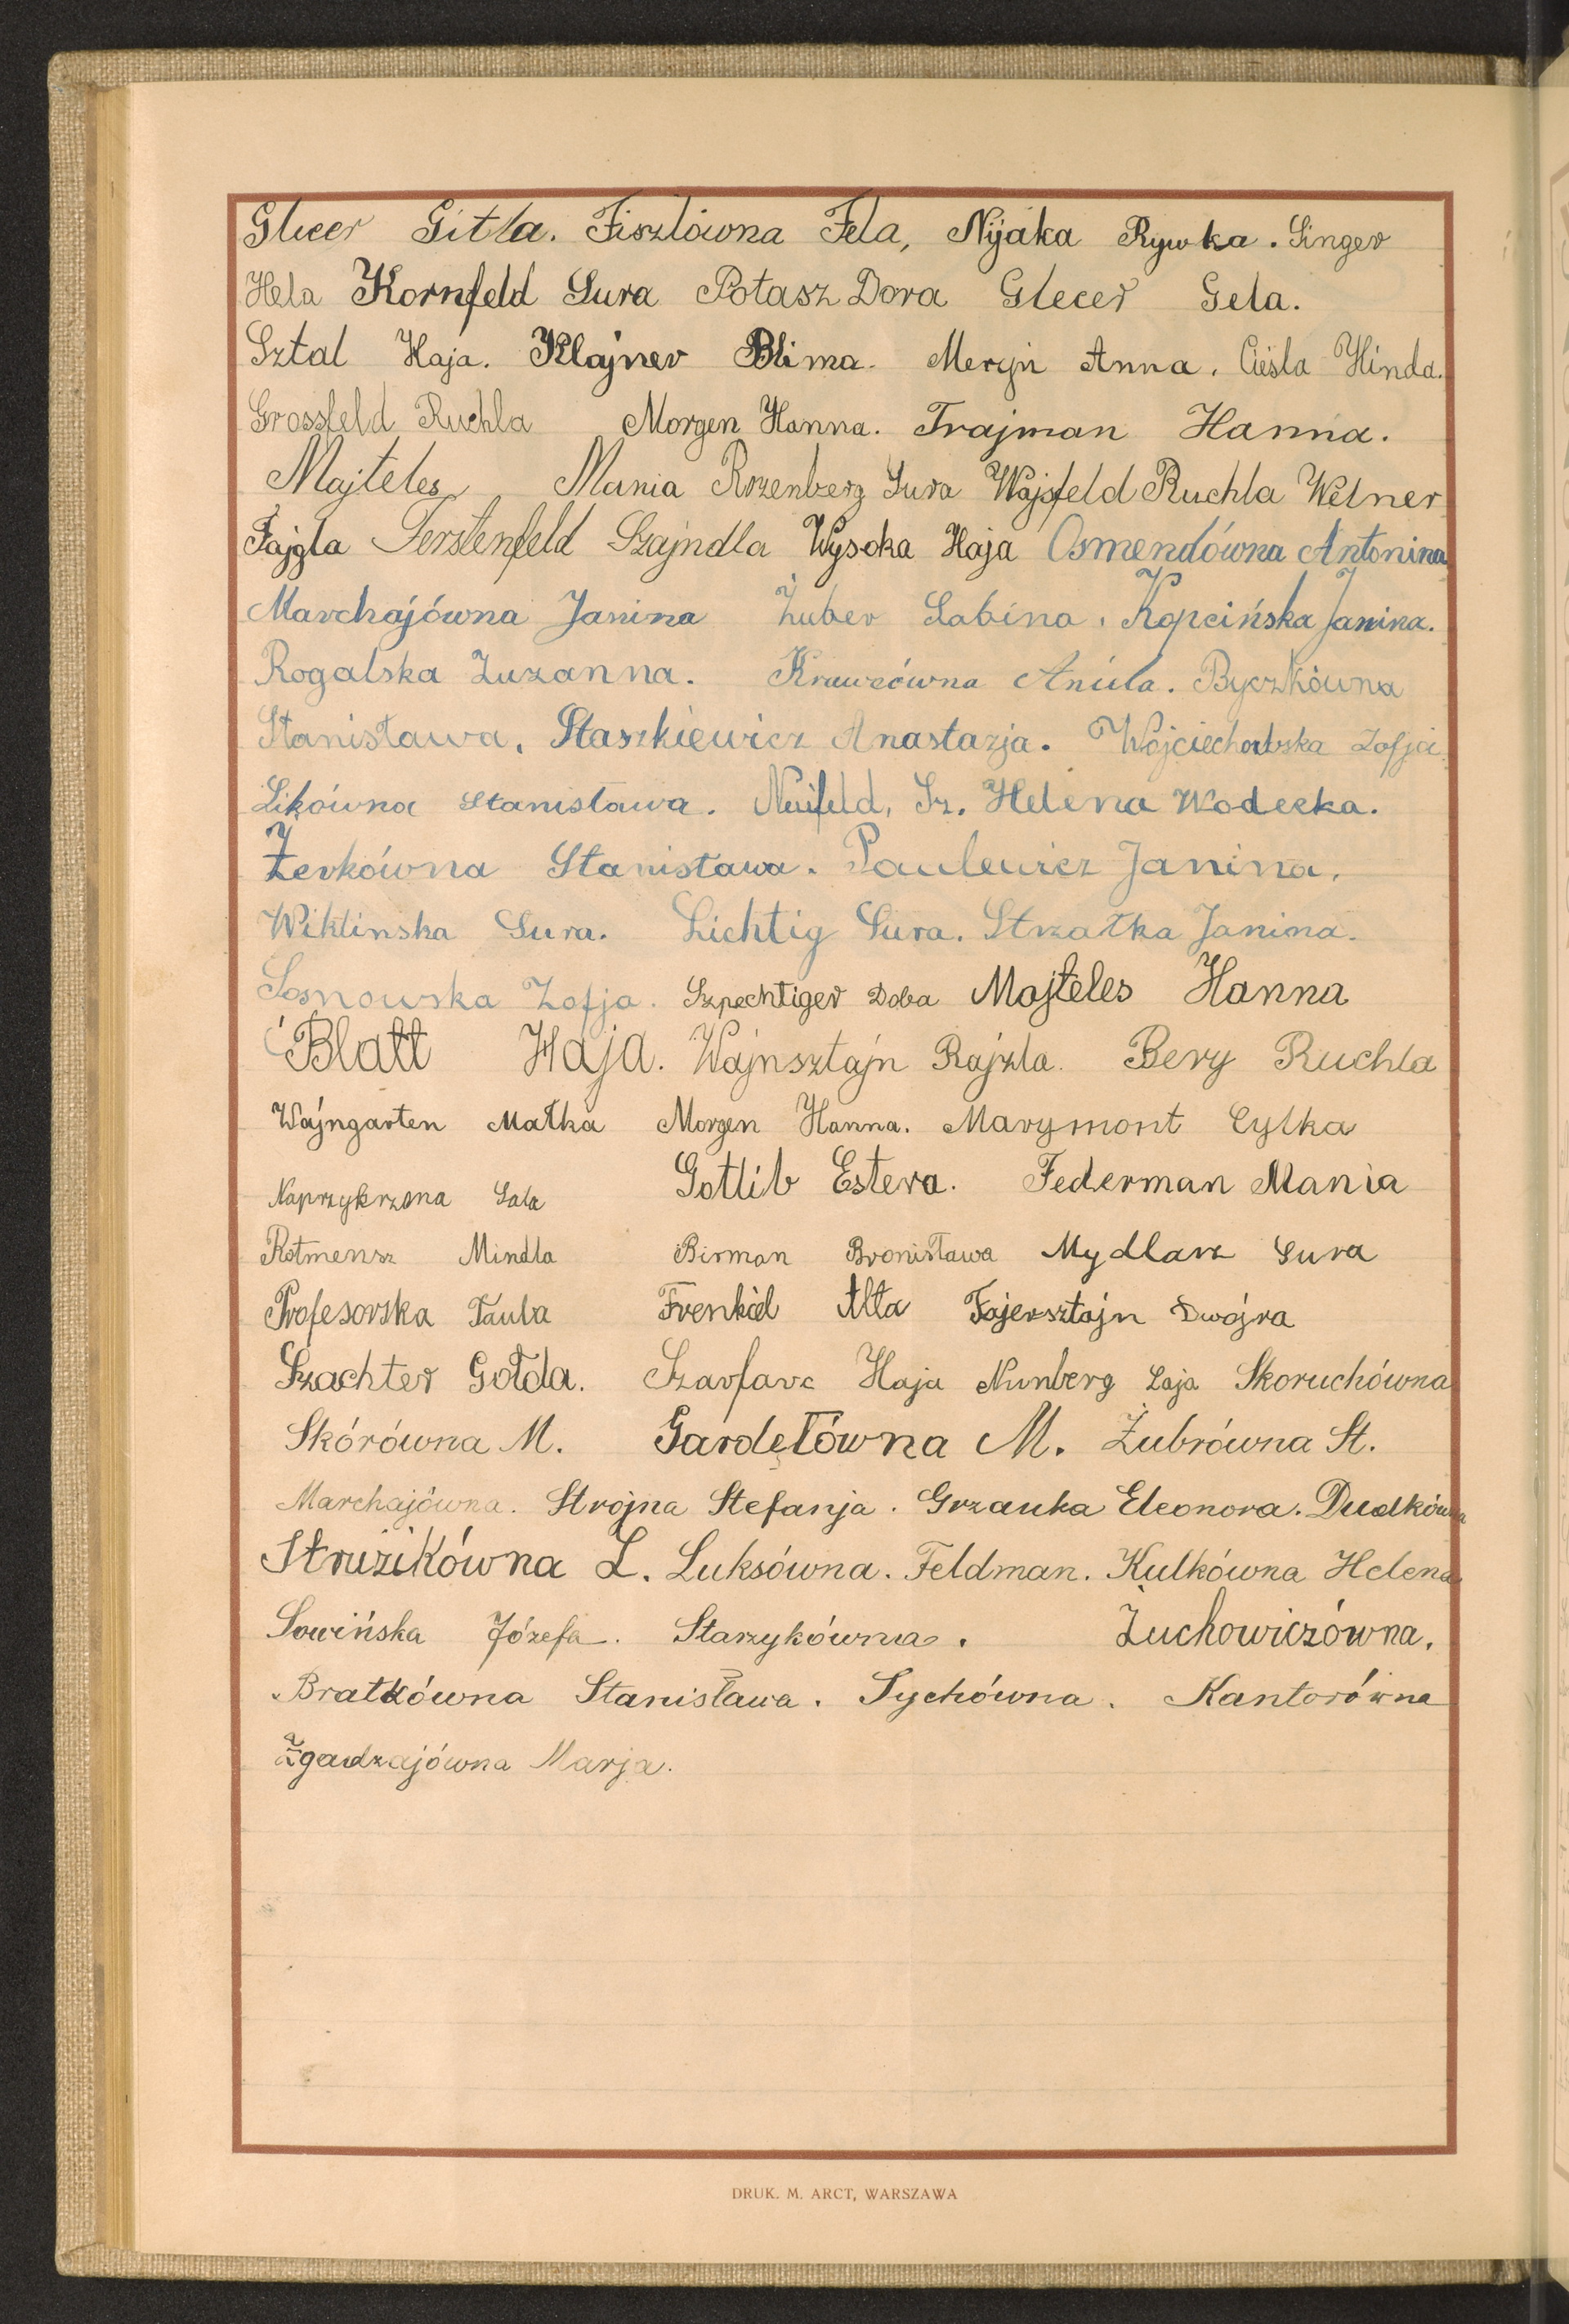 Glecer Gitla. Fiszlówna Fela, Nijaka Rywka. Singer
Hela Kornfeld Sura Potasz Dora Glecer Gela.
Sztal Haja. Klajner Blima. Meryn Anna. Cieśla Hinda.
Grossfeld Ruchla Morgen Hanna. Frajman Hanna.
Majteles Mania Rozenberg Sura Wajsfeld Ruchla Welner
Fajgla Ferstenfeld Szajndla Wysoka Haja Osmendówna Antonina
Marchajówna Janina Żuber Sabina, Kopcińska Janina.
Rogalska Zuzanna. Krawcówna Aniela. Byczkówna
Stanisława, Staszkiewicz Anastazja. Wojciechowska Zofja
Likówna Stanisława. Neufeld, Sz. Helena Wodecka.
Żerkówna Stanisława. Paulewicz Janina.
Wiklinska Sura. Lichtig Sura. Strzałka Janina.
Sosnowska Zofja. Szpechtiger Doba Majteles Hanna
Blatt Haja. Wajnsztajn Rajzla. Berg Ruchla
Wajngarten Małka Morgen Hanna. Marymont Cylka
Naprzykrzona Sala Gotlib Estera. Federman Mania
Rotmensz Mindla Birman Bronisława Mydlarz Sura
Profesorska Paula Frenkiel Alta Fajersztajn Dwojra
Szachter Gołda. Szarfarc Haja Nunberg Laja Skoruchówna
Skórówna M. Gardełówna M. Żubrówna St.
Marchajówna. Strojna Stefanja. Grzanka Eleonora. Dudkówna
Struzikówna L. Luksówna. Feldman. Kulkówna Helena
Sowińska Józefa. Starzykówna. Żuchowiczówna,
Bratkówna Stanisława. Sychówna. Kantorówna
Zgadzajówna Marja.
DRUK. M. ARCT, WARSZAWA